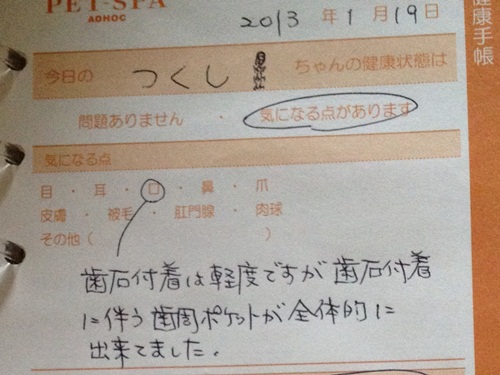 PET-SPA
ADHOC
2013 年 1 月 19 日
健康手帳
今日の つくし ちゃんの健康状態は
問題ありません ・ 気になる点があります
気になる点
目 ・ 耳 ・ 口 ・ 鼻 ・ 爪
皮膚 ・ 被毛 ・ 肛門腺 ・ 肉球
その他 ( )
歯石付着は軽度ですが歯石付着
に伴う歯周ポケットが全体的に
出来てました。